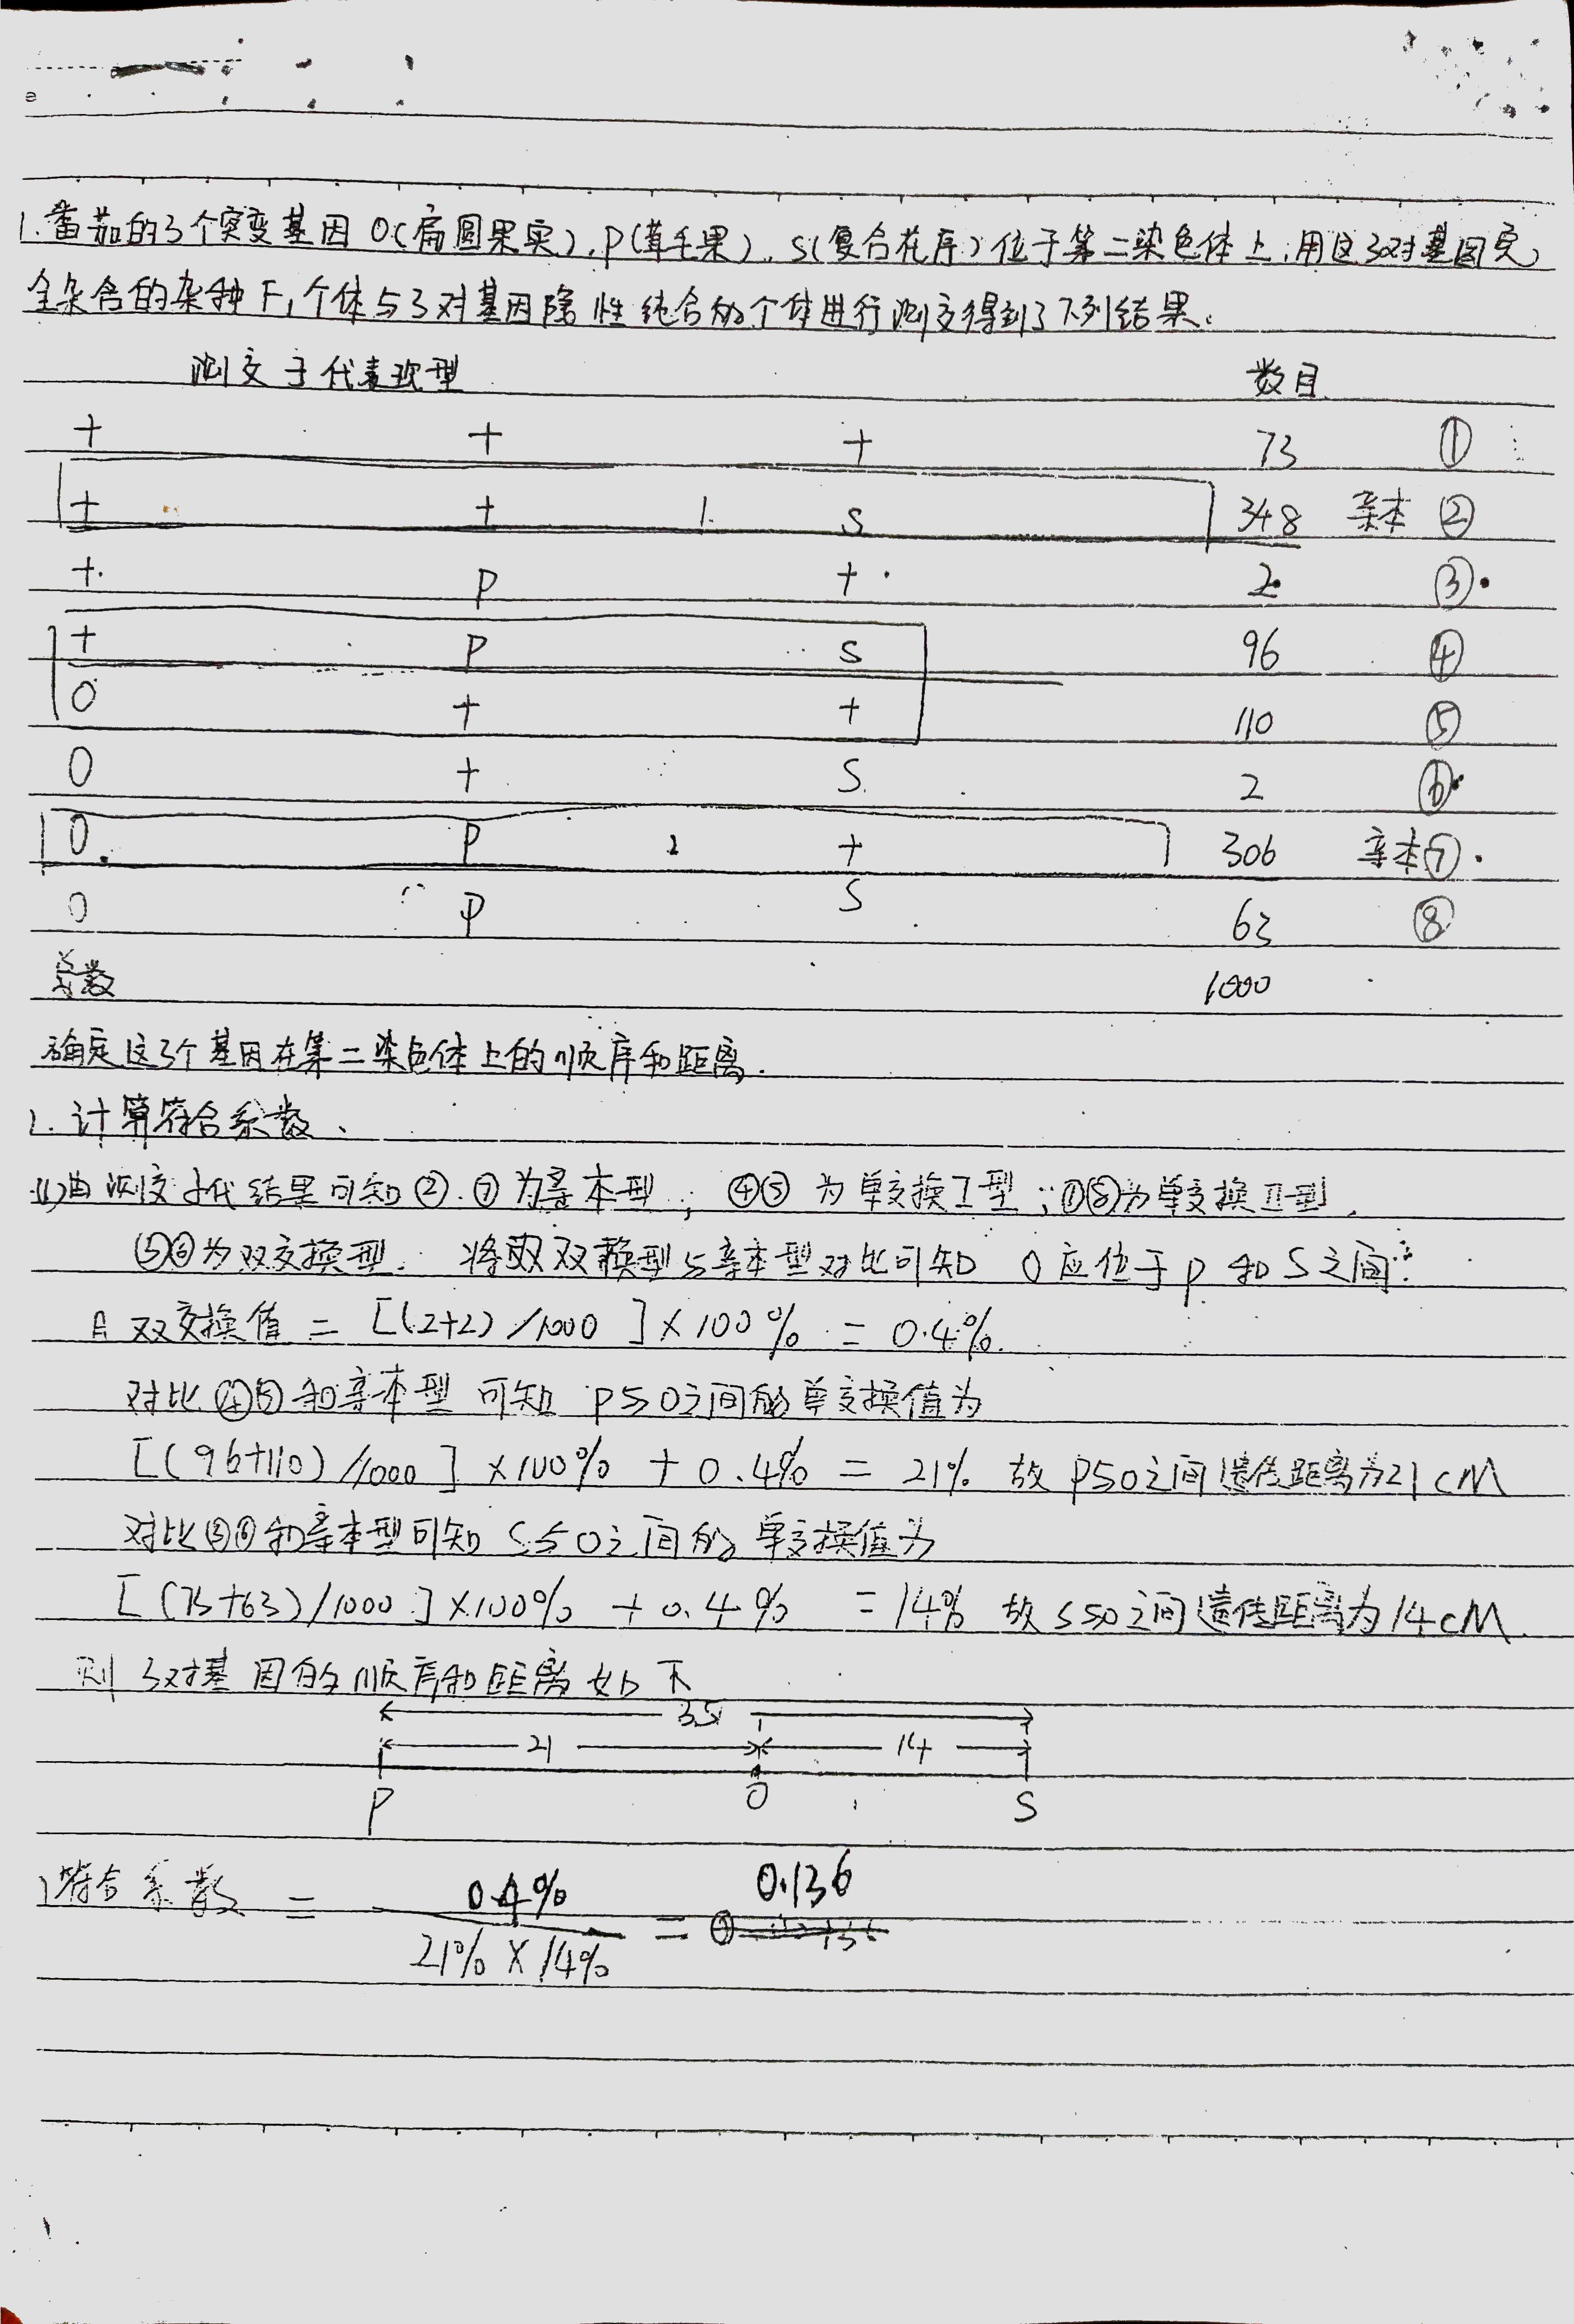 1.番茄的3个突变基因 O(扁圆果实).P(茸毛果).S(复合花序)位于第二染色体上,用这3对基因完
全杂合的杂种F₁个体与3对基因隐性纯合的个体进行测交得到了下列结果.
测交子代表现型 数目
+ + + 73 ①
+ + S 348 亲本 ②
+ P + 2 ③
+ P S 96 ④
O + + 110 ⑤
O + S 2 ⑥
O P + 306 亲本⑦
O P S 63 ⑧
总数 1000
确定这3个基因在第二染色体上的顺序和距离.
2.计算符合系数、
(1)由测交子代结果可知②.⑦为亲本型; ④⑤为单交换I型;①⑧为单交换II型,
③⑥为双交换型. 将双换型与亲本型对比可知 O应位于P和S之间:
A 双交换值 = [(2+2)/1000]×100% = 0.4%.
对比④⑤和亲本型 可知 P与O之间的单交换值为
[(96+110)/1000]×100% + 0.4% = 21% 故P与O之间遗传距离为21cM
对比③⑥和亲本型可知 S与O之间的单交换值为
[(73+63)/1000]×100% + 0.4% =14% 故S与O之间遗传距离为14cM
则3对基因的顺序和距离如下
35
21 14
P O S
2符合系数 = 0.4% / 21%×14% = 0.136